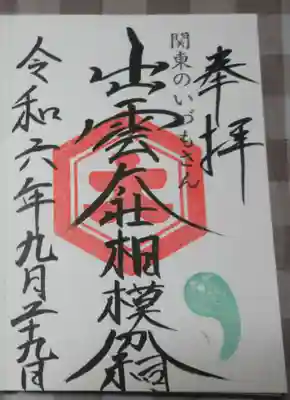 奉拝
関東のいづもさん
出雲大社相模分祠
令和六年九月二十九日